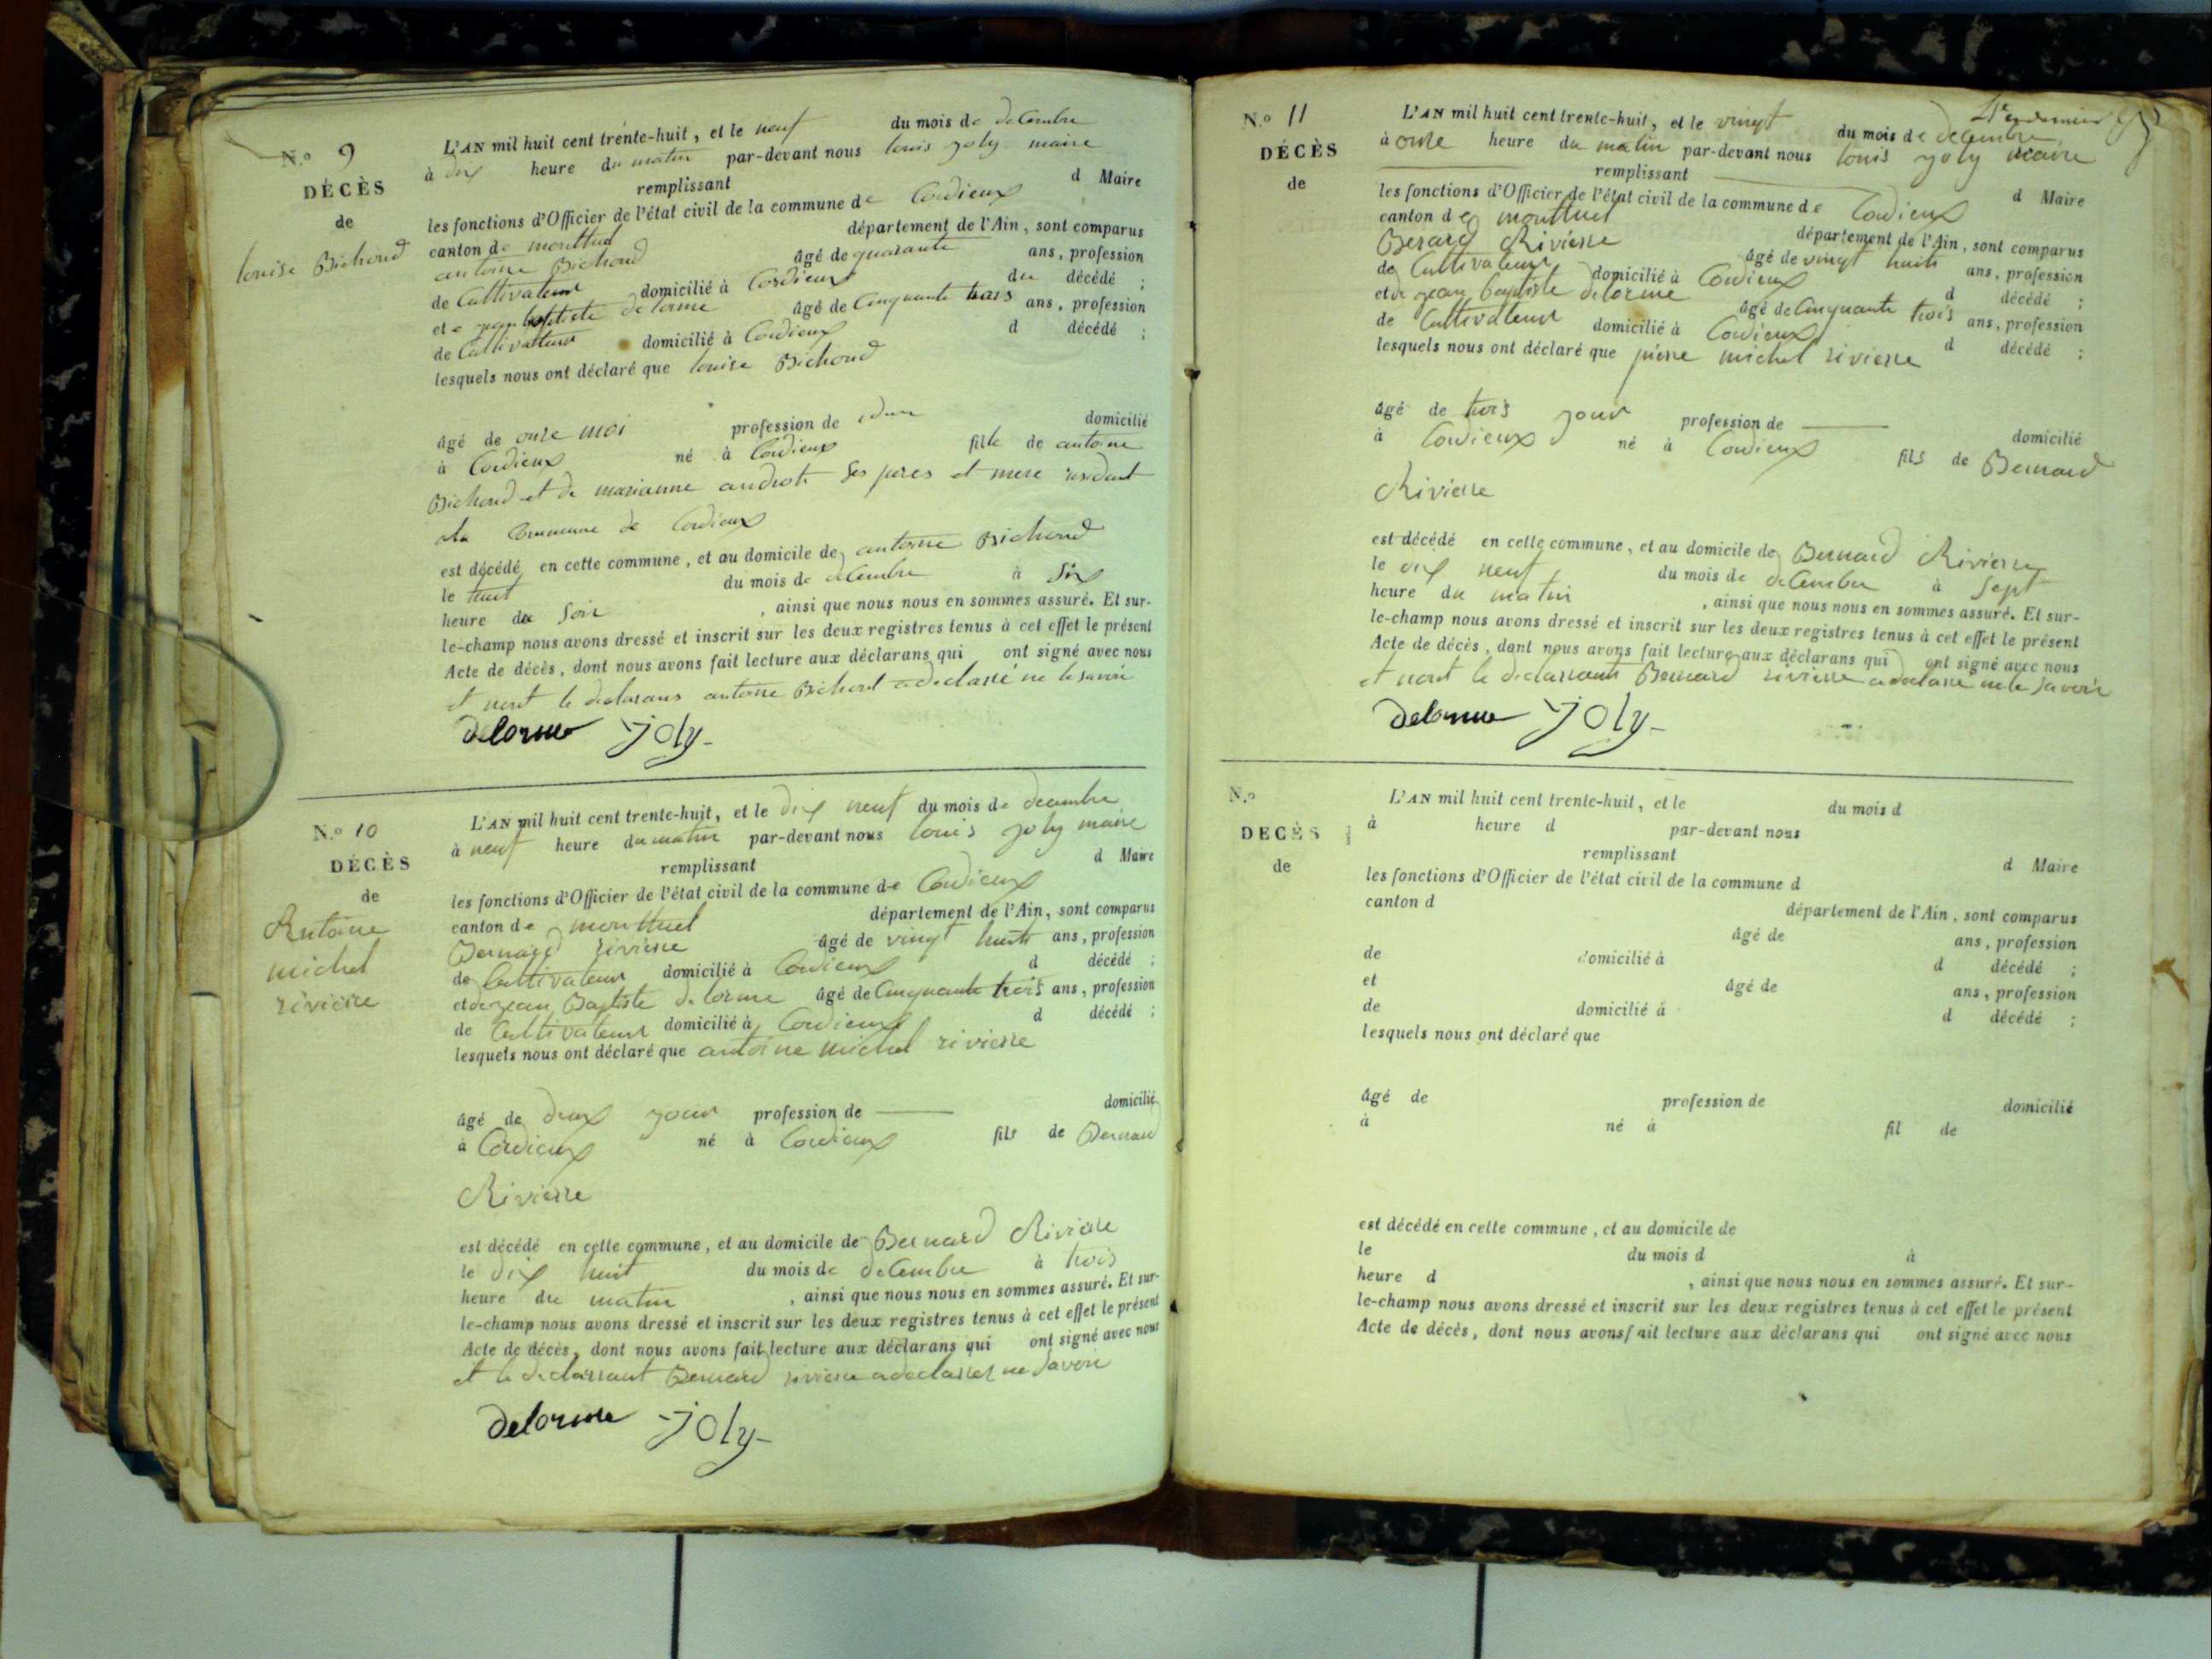 N.º 9
DÉCÈS
de
louise Bichond
L'AN mil huit cent trente-huit, et le neuf du mois de decembre
à dix heure du matin par-devant nous louis joly maire
remplissant d Maire
les fonctions d'Officier de l'état civil de la commune de Cordieux
canton de montluel département de l'Ain, sont comparus
antoine Bichond âgé de quarante ans, profession
de Cultivateur domicilié à Cordieux du décédé ;
et jean baptiste delorme âgé de Cinquante trois ans, profession
de Cultivateur domicilié à Cordieux d décédé ;
lesquels nous ont déclaré que louise Bichond
âgé de onze moi profession de domicilié
à Cordieux né à Cordieux fille de antoine
Bichond et de marianne androt ses peres et mere residant
Commune de Cordieux
est décédé en cette commune, et au domicile de antoine Bichond
le huit du mois de decembre à six
heure du soir , ainsi que nous nous en sommes assuré. Et sur-
le-champ nous avons dressé et inscrit sur les deux registres tenus à cet effet le présent
Acte de décès, dont nous avons fait lecture aux déclarans qui ont signé avec nous
et nont le declarans antoine Bichond a declaré ne le savoir
Delorme joly
N.º 10
DÉCÈS
de
Antoine
michel
rivierre
L'AN mil huit cent trente-huit, et le dix neuf du mois de decembre
à neuf heure du matin par-devant nous louis joly maire
remplissant d Maire
les fonctions d'Officier de l'état civil de la commune de Cordieux
canton de montluel département de l'Ain, sont comparus
Bernard rivierre âgé de vingt huit ans, profession
de Cultivateur domicilié à Cordieux d décédé ;
et de jean Baptiste delorme âgé de Cinquante trois ans, profession
de Cultivateur domicilié à Cordieux d décédé ;
lesquels nous ont déclaré que antoine michel rivierre
âgé de deux jour profession de domicilié
à Cordieux né à Cordieux fils de Bernard
Rivierre
est décédé en cette commune, et au domicile de Bernard Rivierre
le dix huit du mois de decembre à trois
heure du matin , ainsi que nous nous en sommes assuré. Et sur-
le-champ nous avons dressé et inscrit sur les deux registres tenus à cet effet le présent
Acte de décès, dont nous avons fait lecture aux déclarans qui ont signé avec nous
et le declarrant Bernard rivierre a declarer ne savoir
Delorme joly
N.º 11
DÉCÈS
de
L'AN mil huit cent trente-huit, et le vingt du mois de decembre
à onze heure du matin par-devant nous louis joly maire
remplissant d Maire
les fonctions d'Officier de l'état civil de la commune de Cordieux
canton de montluel département de l'Ain, sont comparus
Berard Rivierre âgé de vingt huit ans, profession
de Cultivateur domicilié à Cordieux d décédé ;
et de jean baptiste delorme âgé de Cinquante trois ans, profession
de Cultivateur domicilié à Cordieux d décédé ;
lesquels nous ont déclaré que pierre michel rivierre
âgé de trois jour profession de domicilié
à Cordieux né à Cordieux fils de Bernard
Rivierre
est décédé en cette commune, et au domicile de Bernard Rivierre
le dix neuf du mois de decembre à sept
heure du matin , ainsi que nous nous en sommes assuré. Et sur-
le-champ nous avons dressé et inscrit sur les deux registres tenus à cet effet le présent
Acte de décès, dont nous avons fait lecture aux déclarans qui ont signé avec nous
et nont le declarrants Bernard rivierre a declaré ne le savoir
Delorme joly
N.º
DECÈS
de
L'AN mil huit cent trente-huit, et le du mois d
à heure d par-devant nous
remplissant d Maire
les fonctions d'Officier de l'état civil de la commune d
canton d département de l'Ain, sont comparus
âgé de ans, profession
de domicilié à d décédé ;
et âgé de ans, profession
de domicilié à d décédé ;
lesquels nous ont déclaré que
âgé de profession de domicilié
à né à fil de
est décédé en cette commune, et au domicile de
le du mois d à
heure d , ainsi que nous nous en sommes assuré. Et sur-
le-champ nous avons dressé et inscrit sur les deux registres tenus à cet effet le présent
Acte de décès, dont nous avons fait lecture aux déclarans qui ont signé avec nous